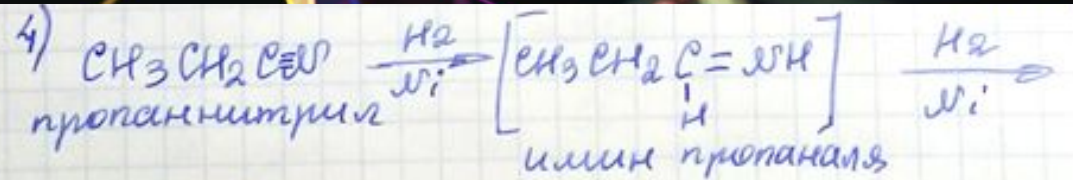 4) CH3CH2C≡N H2 Ni [CH3CH2C=NH H] H2 Ni
пропаннитрил
имин пропаналя